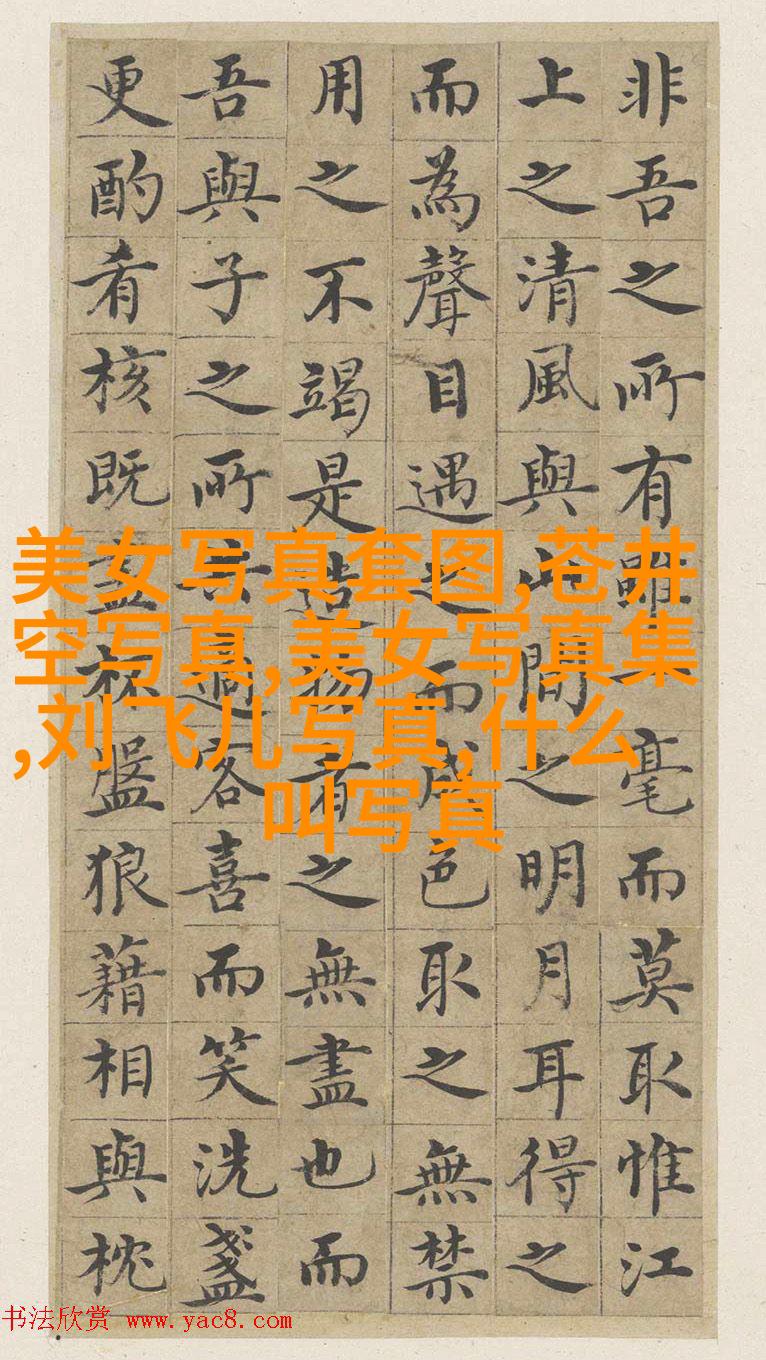 非吾之所有雖一毫而莫取惟江
上之清風與山間之明月耳得之
而為聲目遇之而成色取之無禁
用之不竭是造物者之無盡也而
吾與子之所共適客喜而笑洗盞
更酌肴核既盡杯盤狼藉相與枕
美女写真套图,苍井
空写真,美女写真集
,刘飞儿写真,什么
叫写真
书法欣赏 www.yac8.com